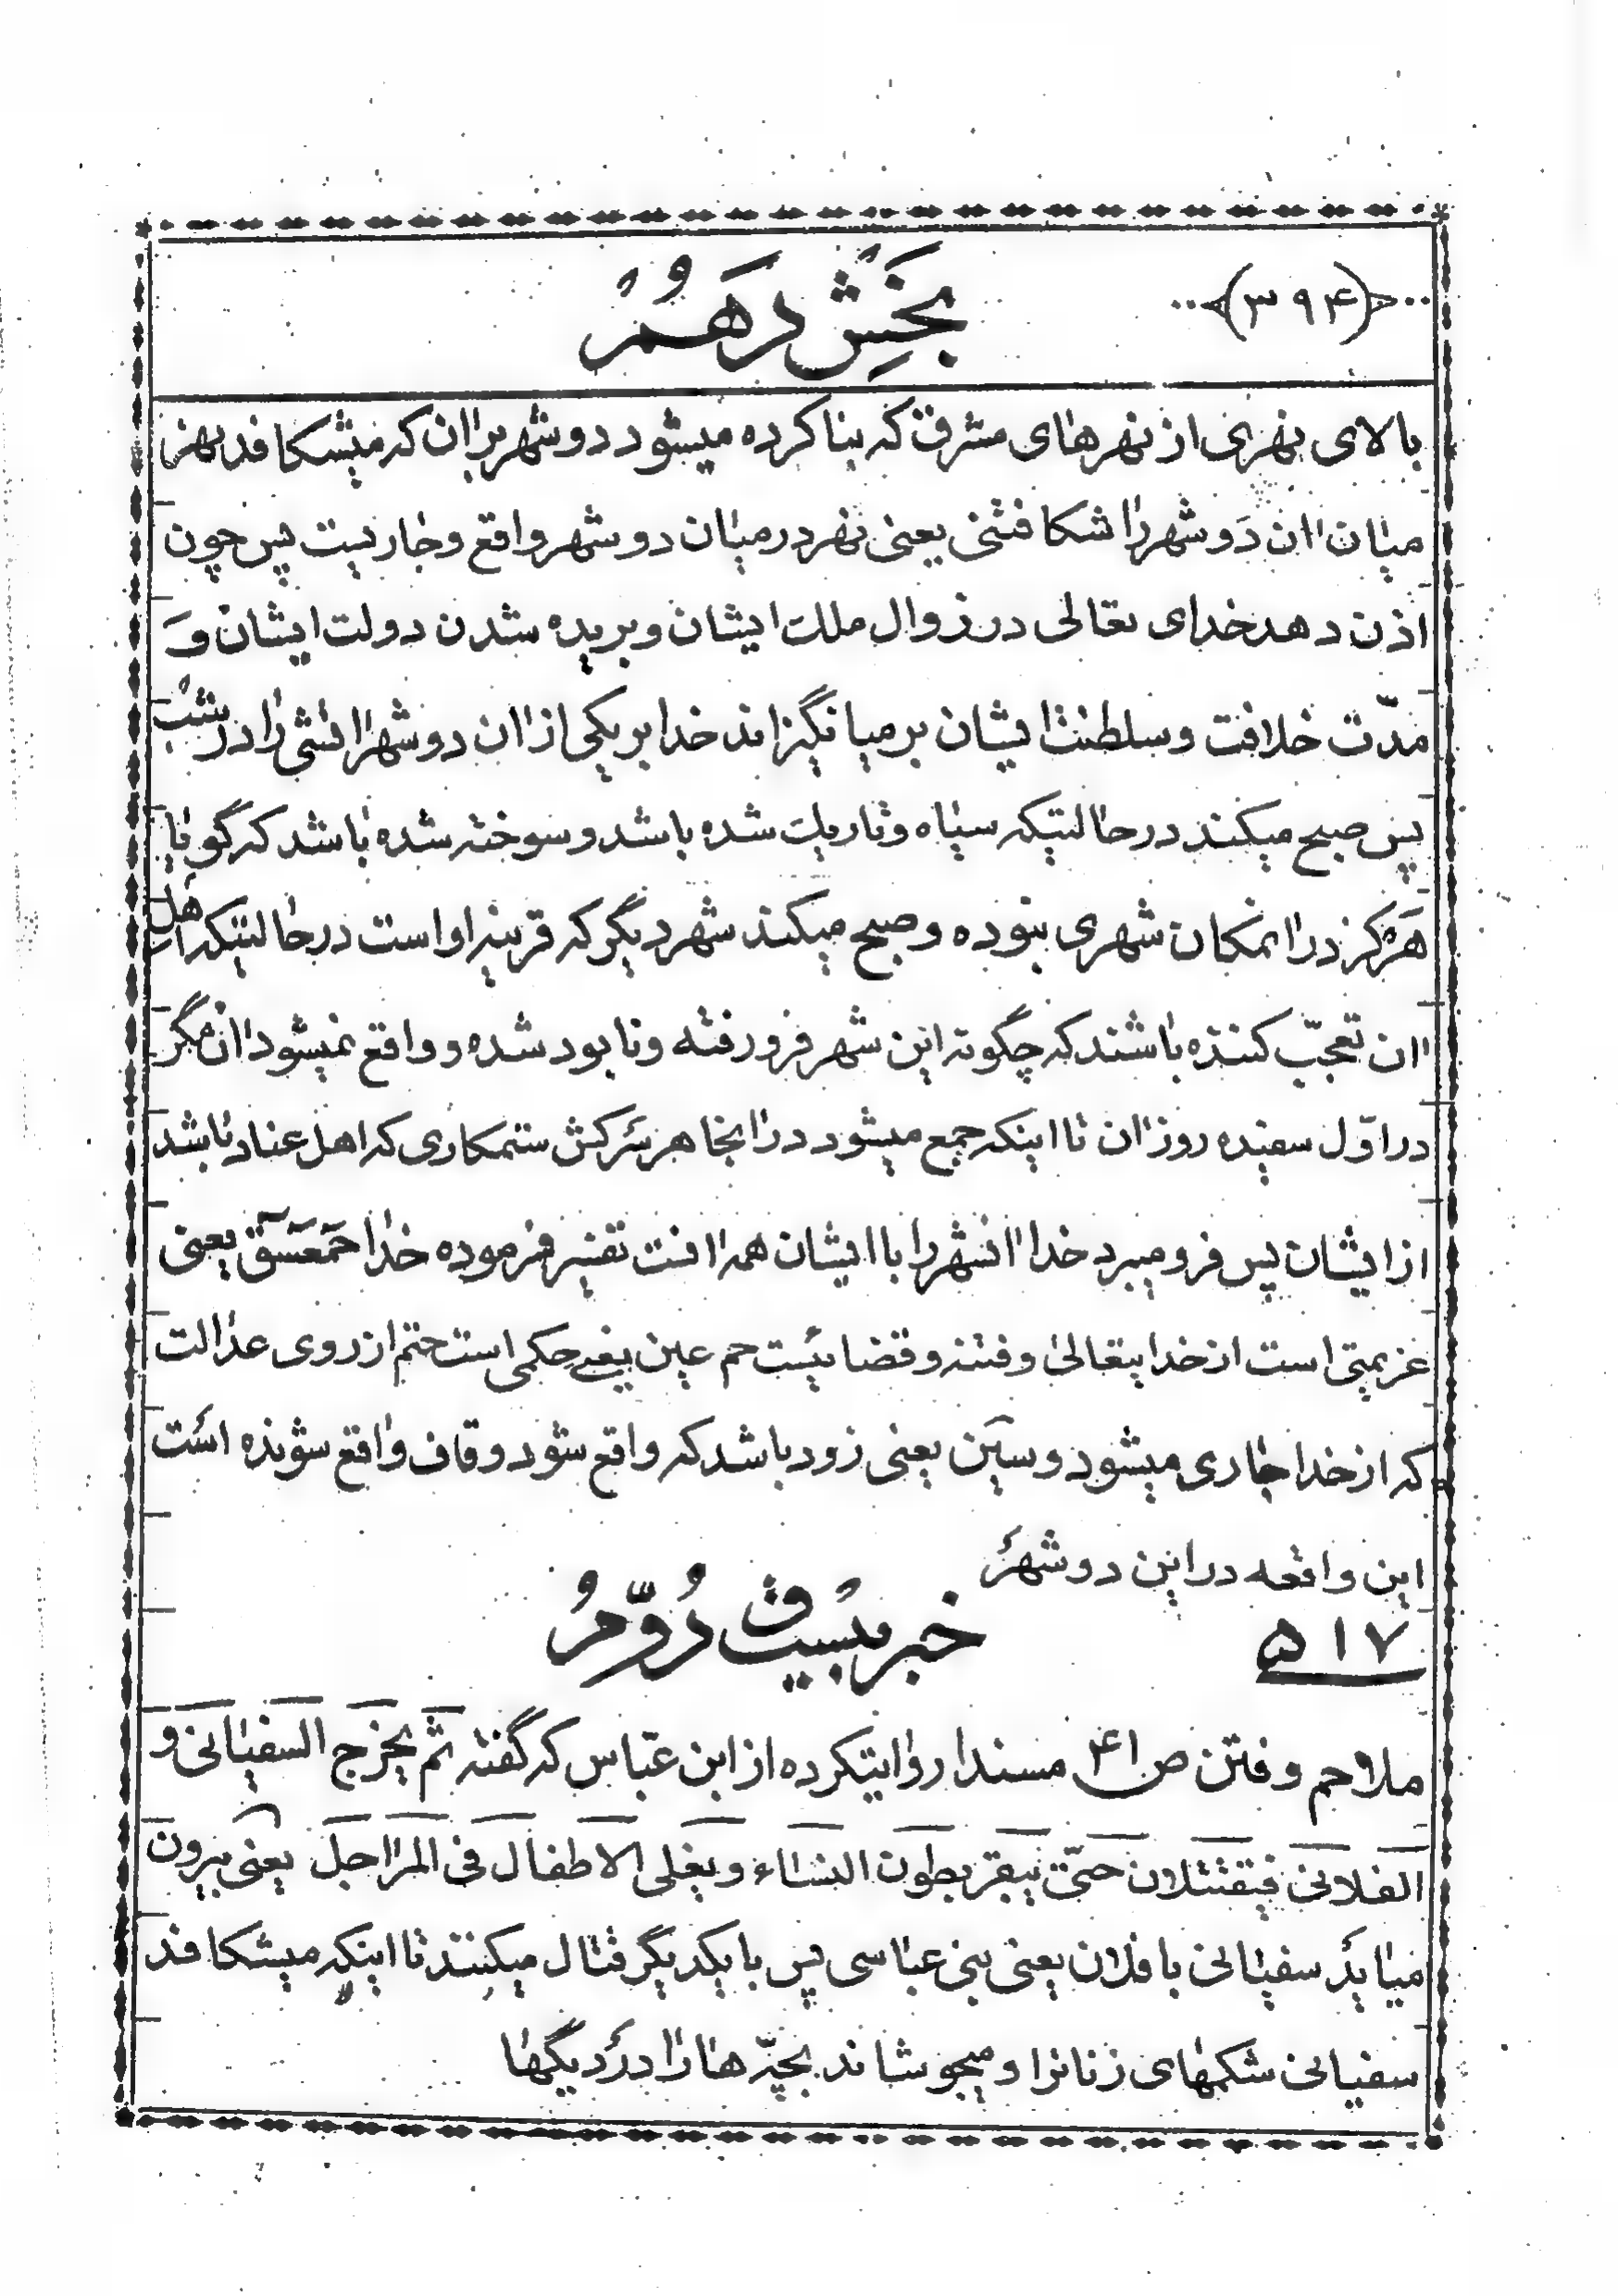 (۳۹۴)
بخش دهم
بالای نهری از نهرهای مشرق که بنا کرده میشود دو شهر بر آن که میشکافد نهر
میان آن دو شهر را شکافتنی یعنی نهر در میان دو شهر واقع و جاریست پس چون
اذن دهد خدای تعالی در زوال ملک ایشان و بریده شدن دولت ایشان و
مدّت خلافت و سلطنت ایشان برمیانگیزاند خدا بر یکی از آن دو شهر آتشی را در شب
پس صبح میکند در حالتیکه سیاه و تاریک شده باشد و سوخته شده باشد که گویا
هرگز در آنمکان شهری نبوده و صبح میکند شهر دیگر که قرینه او است در حالتیکه اهل
آن تعجّب کننده باشند که چگونه این شهر فرو رفته و نابود شده و واقع نمیشود آن مگر
در اوّل سفیده روز آن تا اینکه جمع میشود در آنجا هر سرکش ستمکاری که اهل عناد باشد
از ایشان پس فرو میبرد خدا آنشهر را با ایشان همه آنست تفسیر فرموده خدا حمعسق یعنی
عزیمتی است از خدایتعالی و فتنه و قضائیست حم عین یعنی حکمی است حتم از روی عدالت
که از خدا جاری میشود و سین یعنی زود باشد که واقع شود و قاف واقع شونده است
این واقعه در این دو شهر
۵۱۷ خبر بیست و دوّم
ملاحم و فتن ص ۴۱ مسندا روایتکرده از ابن عبّاس که گفته ثم یخرج السفیانی و
الفلانی فیقتتلان حتّی یبقر بطون النساء و یغلی الاطفال فی المراجل یعنی بیرون
میاید سفیانی با فلان یعنی بنی عباسی پس با یکدیگر قتال میکنند تا اینکه میشکافد
سفیانی شکمهای زنانرا و میجوشاند بچّه ها را در دیگها